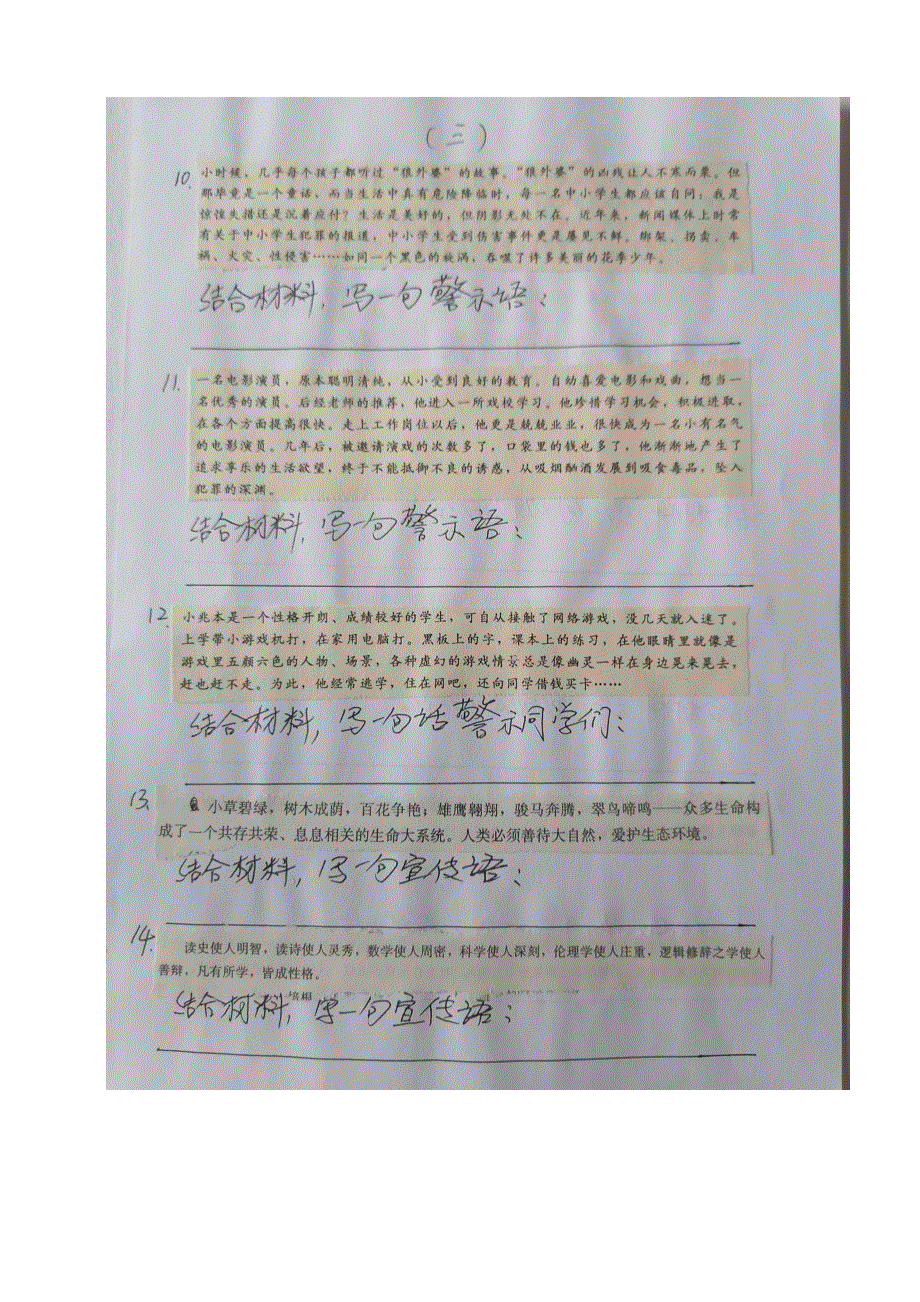 (三)
10. 小时候，几乎每个孩子都听过“狼外婆”的故事。“狼外婆”的凶残让人不寒而栗。但
那毕竟是一个童话，而当生活中真有危险降临时，每一名中小学生都应该自问：我是
惊惶失措还是沉着应付？生活是美好的，但阴影无处不在。近年来，新闻媒体上时常
有关于中小学生犯罪的报道，中小学生受到伤害事件更是屡见不鲜。绑架、拐卖、车
祸、火灾、性侵害……如同一个黑色的旋涡，吞噬了许多美丽的花季少年。
结合材料，写一句警示语：
11. 一名电影演员，原本聪明清纯，从小受到良好的教育。自幼喜爱电影和戏曲，想当一
名优秀的演员。后经老师的推荐，他进入一所戏校学习。他珍惜学习机会，积极进取，
在各个方面提高很快。走上工作岗位以后，他更是兢兢业业，很快成为一名小有名气
的电影演员。几年后，被邀请演戏的次数多了，口袋里的钱也多了，他渐渐地产生了
追求享乐的生活欲望，终于不能抵御不良的诱惑，从吸烟酗酒发展到吸食毒品，坠入
犯罪的深渊。
结合材料，写一句警示语：
12. 小兆本是一个性格开朗、成绩较好的学生，可自从接触了网络游戏，没几天就入迷了。
上学带小游戏机打，在家用电脑打。黑板上的字，课本上的练习，在他眼睛里就像是
游戏里五颜六色的人物、场景，各种虚幻的游戏情景总是像幽灵一样在身边晃来晃去，
赶也赶不走。为此，他经常逃学，住在网吧，还向同学借钱买卡……
结合材料，写一句话警示同学们：
13. 小草碧绿，树木成荫，百花争艳；雄鹰翱翔，骏马奔腾，翠鸟啼鸣——众多生命构
成了一个共存共荣、息息相关的生命大系统。人类必须善待大自然，爱护生态环境。
结合材料，写一句宣传语：
14. 读史使人明智，读诗使人灵秀，数学使人周密，科学使人深刻，伦理学使人庄重，逻辑修辞之学使人
善辩，凡有所学，皆成性格。
结合材料，写一句宣传语：